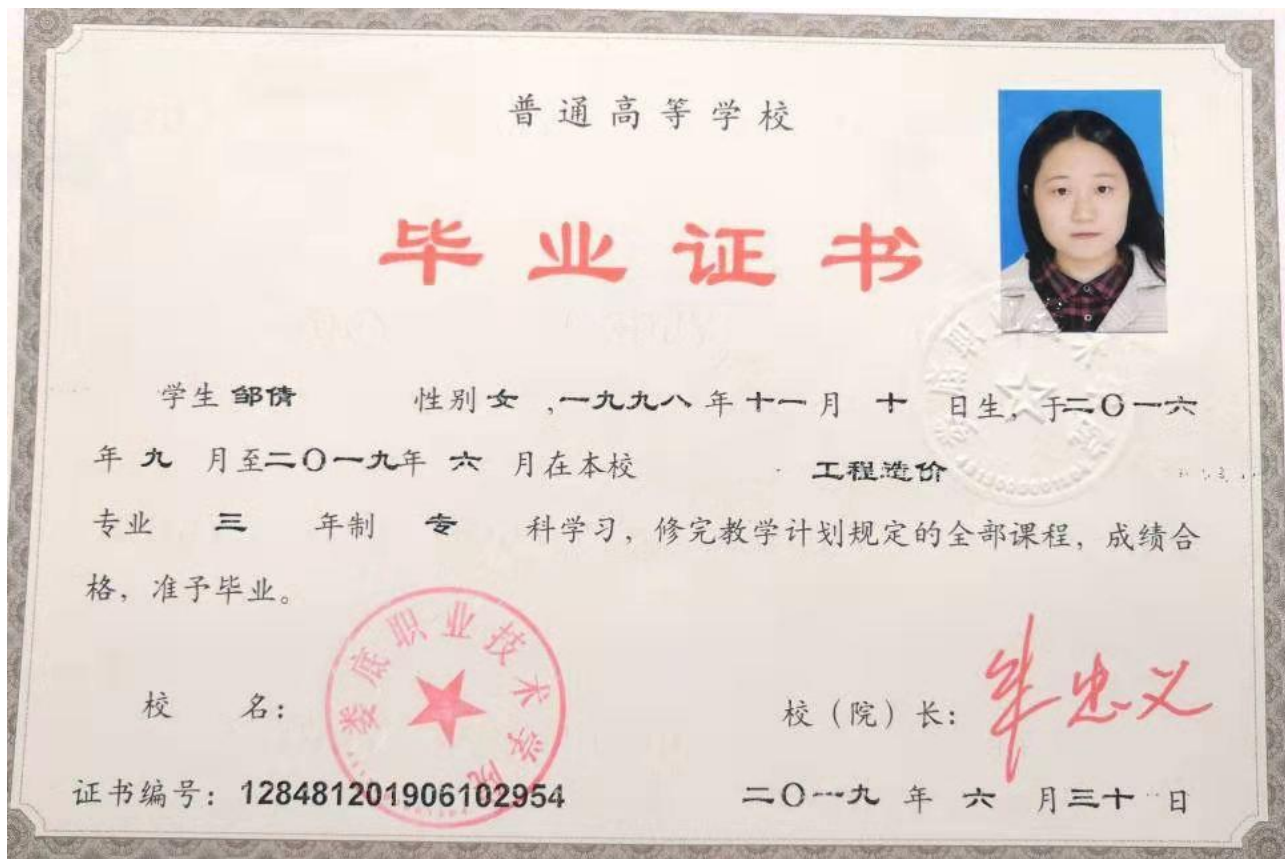 普通高等学校
毕业证书
学生 邹倩 性别 女 ,一九九八 年 十一 月 十 日生, 于二〇一六
年 九 月至二〇一九年 六 月在本校 工程造价
专业 三 年制 专 科学习, 修完教学计划规定的全部课程, 成绩合
格, 准予毕业。
校 名:
娄底职业技术学院
校(院)长:
证书编号: 128481201906102954
二〇一九 年 六 月三十 日